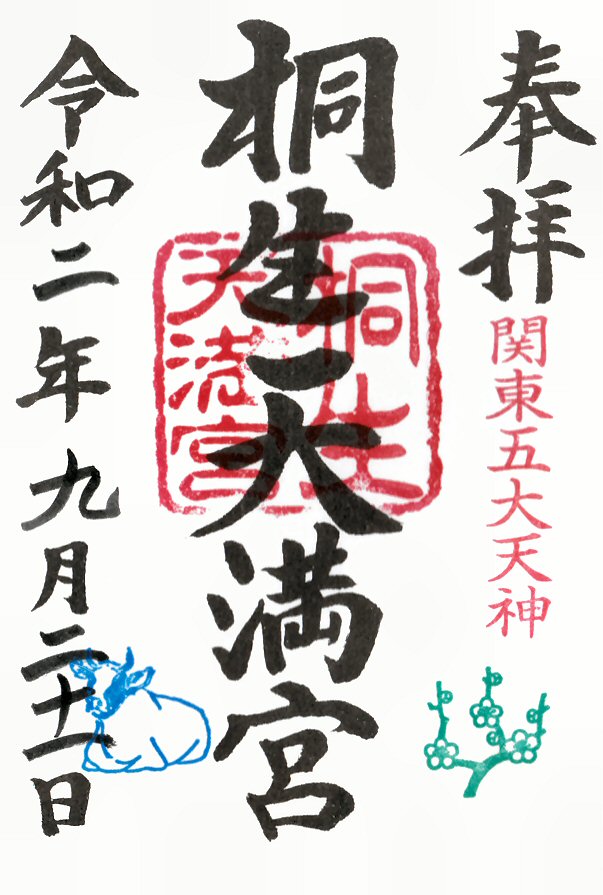 奉拝
関東五大天神
桐生天満宮
桐生
天満宮
令和二年九月二十二日